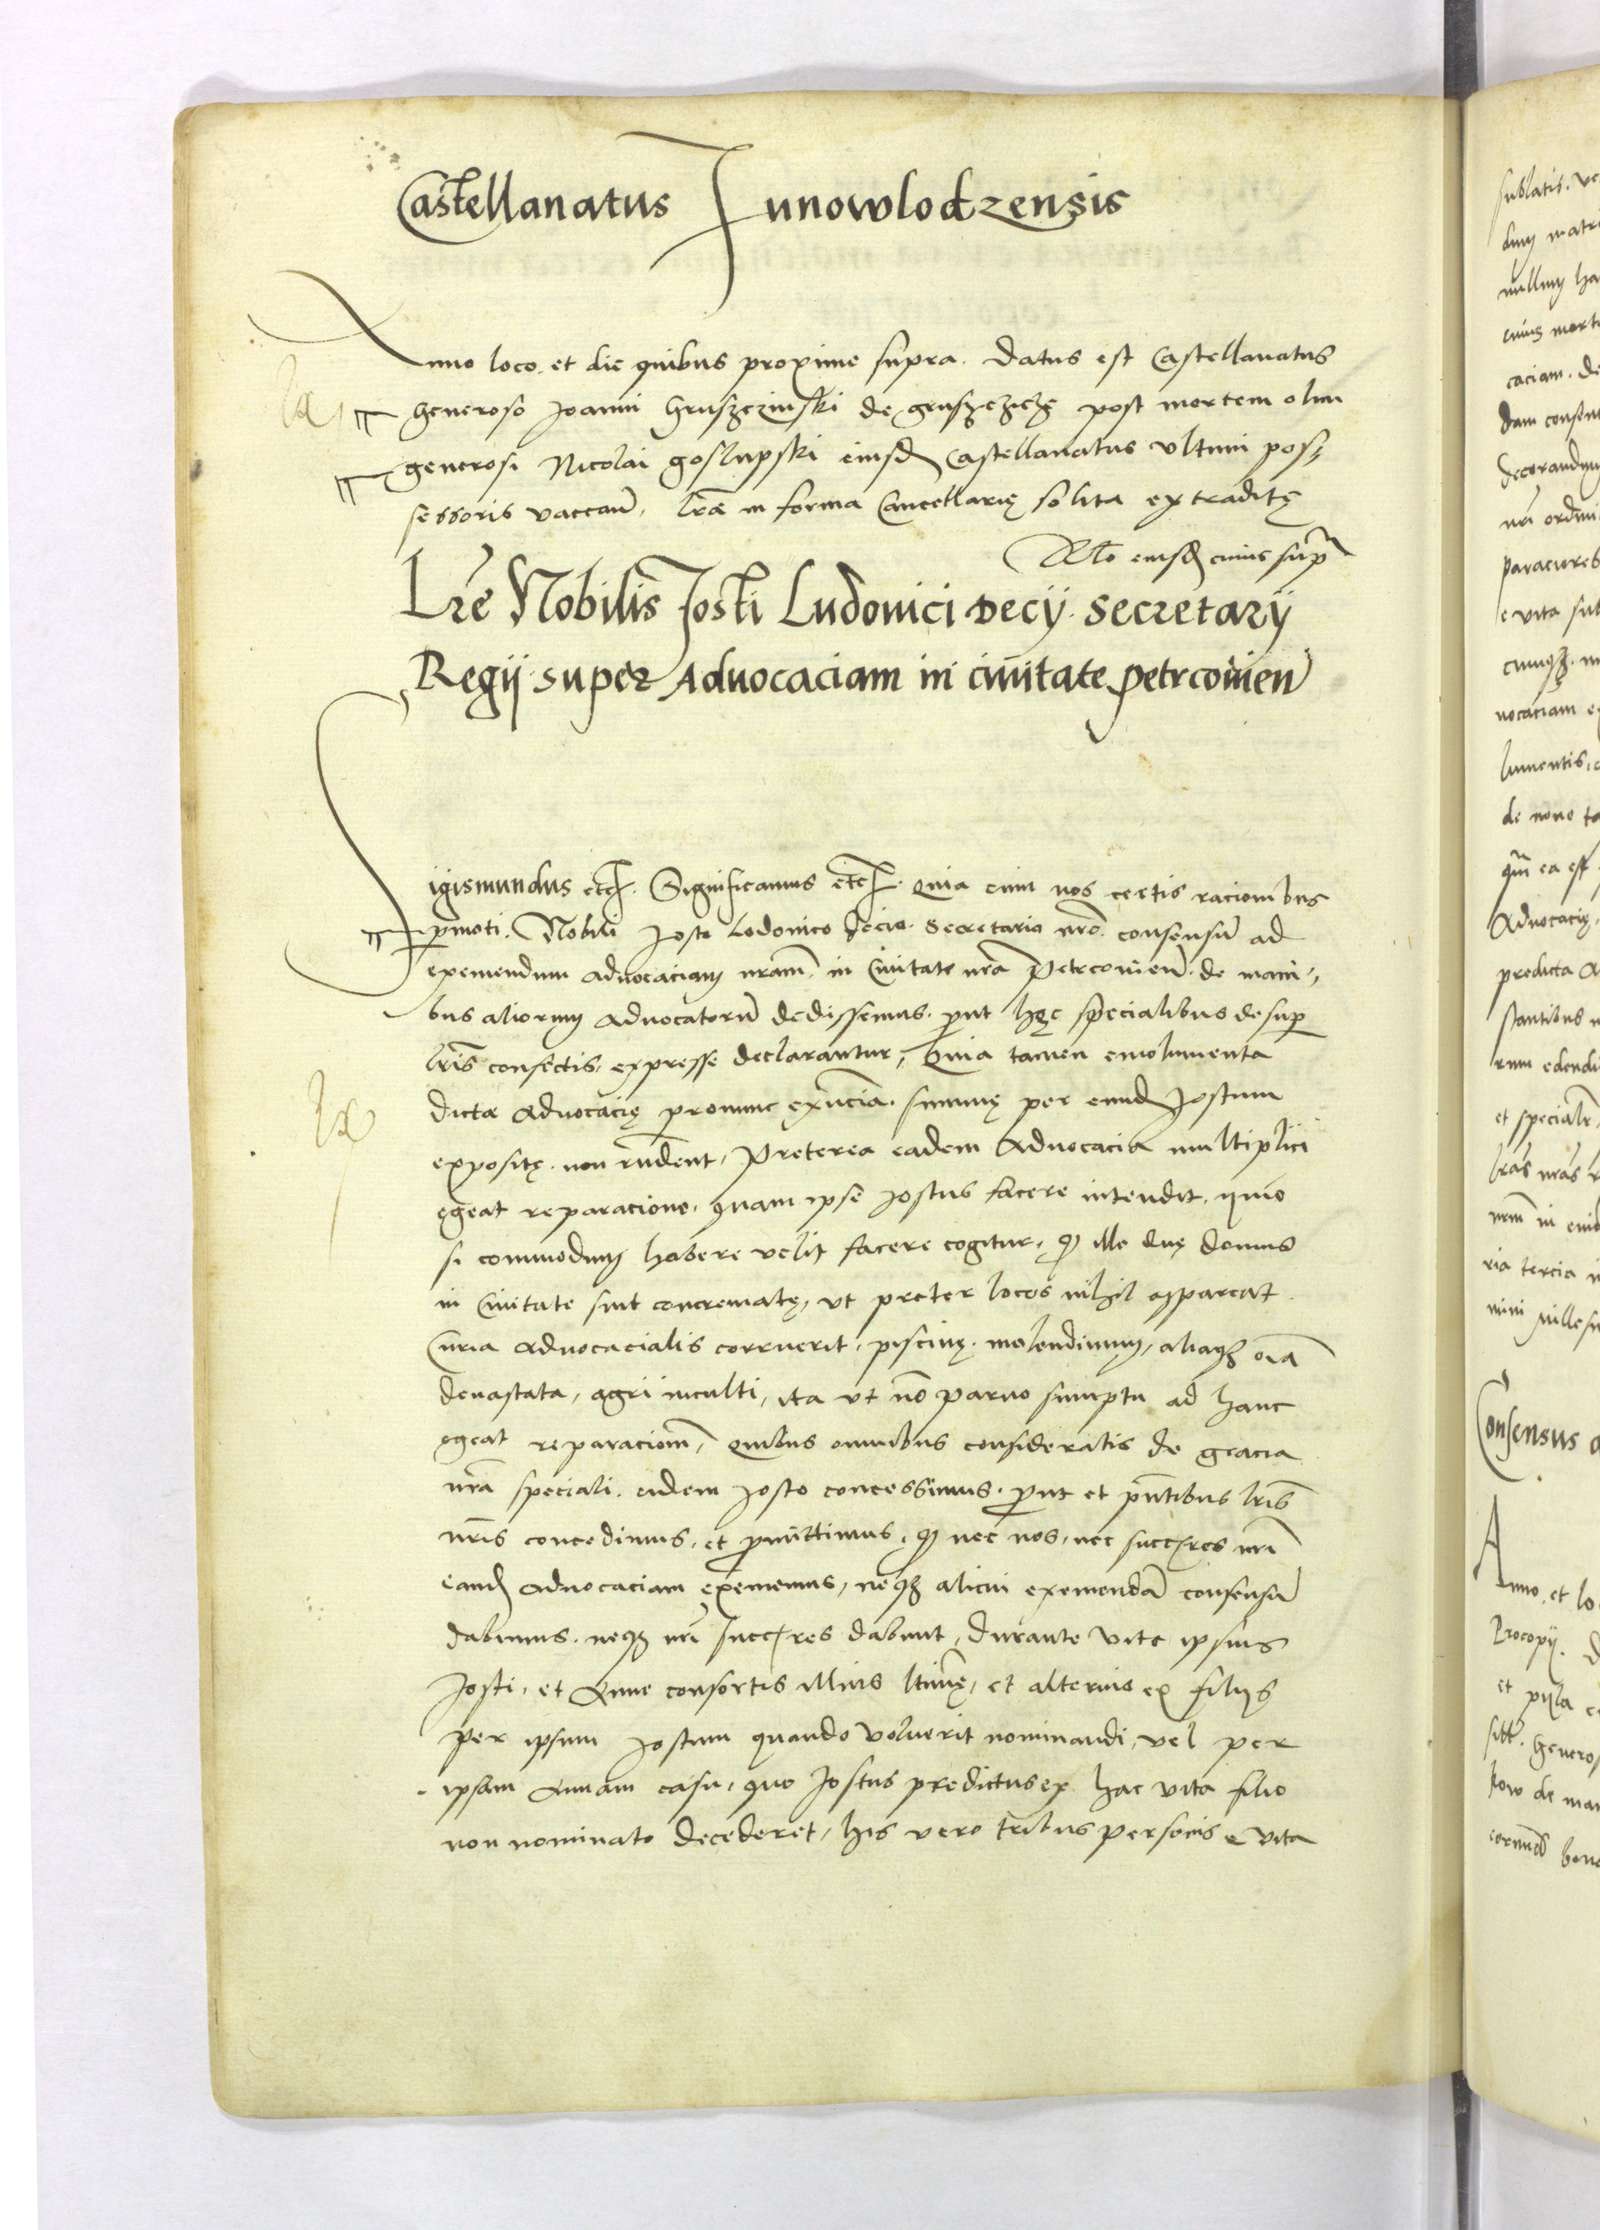 Castellanatus Junowlodzensis
Anno loco et die quibus proxime supra. datus est Castellanatus
generoso Joanni Gruszczinski de gruszczicze post mortem olim
generosi Nicolai goslupski eiusd Castellanatus ultimi pos¬
sessoris vaccan, lrae in forma Cancellarię solita extraditę
Rlo eiusd cuius sup
Lre Nobilis Josti Ludovici Decij Secretarij
Regij super Advocaciam in civitate petrcovien
Sigismundus etc. Significamus etc. Quia cum nos certis racionibus
pmoti. Nobili Josto Lodovico Decio Secretario nro consensu ad
exemendum advocaciam nram in Civitate nra Petrcovien de mani¬
bus aliorum advocatoru dedissemus. put hęc specialibus desup
lris confectis expresse declarantur, Quia tamen emolumenta
dicta advocacię pronunc exilia summę per eund Jostum
expositę non rndent, Preterea eadem advocacia multiplici
egeat reparacione, quam ipse Jostus facere intendit, ymo
si commodum habere velit facere cogitur, q ille duę domus
in Civitate sint concrematę, ut preter locos nihil appareat
Curia advocacialis corruerit, piscinę, molendinum, aliaq oia
devastata, agri inculti, ita ut no parvo sumptu ad hanc
egeat reparaciom, Quibus omnibus consideratis de gracia
nra speciali eidem Josto concessimus. put et pntibus lris
nris concedimus, et pmittimus, q nec nos, nec succres nri
eand advocaciam exememus, neq alicui exemenda consensu
dabimus, neq nri succres dabunt, durante vite ipsius
Josti, et Anne consortis illius ltimę, et alterius ex filijs
per ipsum Jostum quando voluerit nominandi, vel per
ipsam Annam casu, quo Jostus predictus ex hac vita filio
non nominato decederet, his vero tribus personis e vita